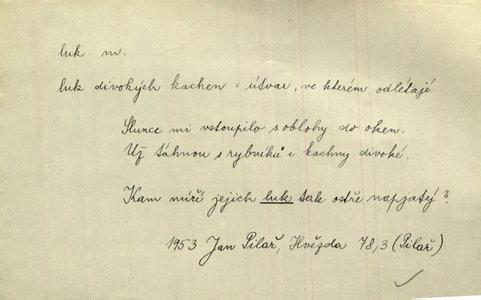 luk m.
luk divokých kachen = útvar, ve kterém odlétají
Slunce mi vstoupilo s oblohy do oken.
Už táhnou s rybníků i kachny divoké.
Kam míří jejich luk tak ostře napjatý?
1953 Jan Pilař, Hvězda 78,3 (Pilař)